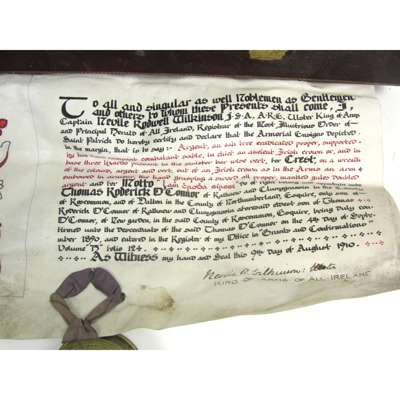 To all and singular as well Noblemen as Gentlemen
and others to whom these Presents shall come, I,
Captain Nevile Rodwell Wilkinson F.S.A., A.R.E, Ulster King of Arms
and Principal Herald of All Ireland, Registrar of the Most Illustrious Order of
Saint Patrick Do hereby certify and declare that the Armorial Ensigns depicted
in the margin, that is to say:- Argent, an oak tree eradicated proper, supported
by two lions rampant combatant sable, in chief an ancient Irish crown or, and in
base three lizards passant in the sinister vert, for Crest:- on a wreath
of the colours, argent and vert, out of an Irish crown as in the Arms an arm
embowed in armour, the hand grasping a sword all proper, manifled gules doubled
argent; and for Motto
Thomas Roderick O'Connor of Rathnew and Cluniygnassin in the
of Roscommon, and of Dalton in the County of Northumberland, Esquire, only son of
Roderick O'Connor of Rathnew and Cluniygnassin aforesaid eldest son of Thomas
O'Connor, of New garden, in the said County of Roscommon, Esquire, being Duly con-
firmed unto the Descendants of the said Thomas O'Connor on the 4th Day of Septe-
mber 1890, and entered in the Register of my Office in Grants and Confirmations
Volume H folio 124.
As Witness my hand and Seal this 9th Day of August 1910.
Nevile R. Wilkinson: Ulster
KING OF ARMS OF ALL IRELAND